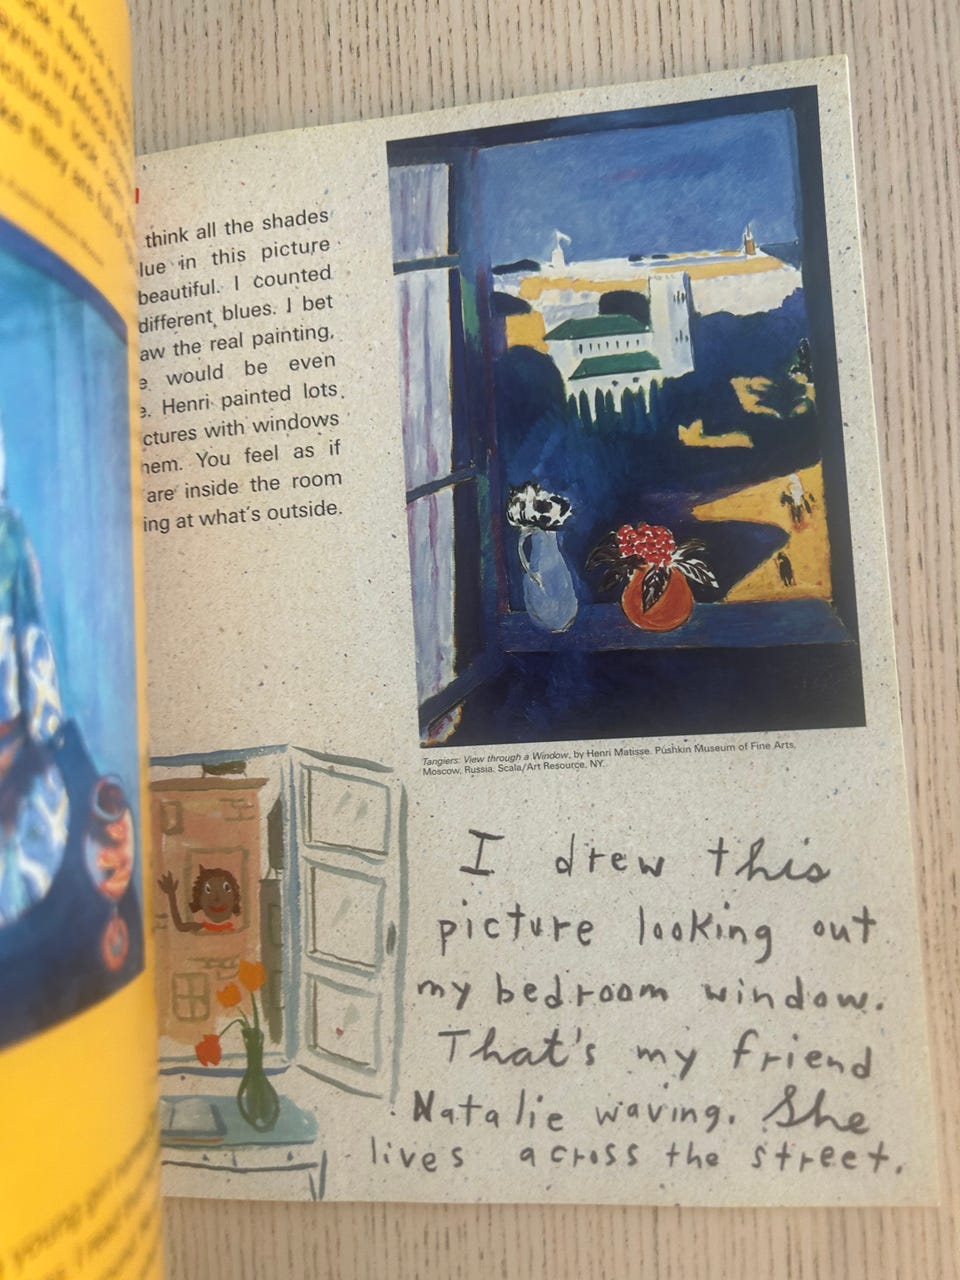 think all the shades
lue in this picture
beautiful. I counted
different blues. I bet
aw the real painting,
would be even
Henri painted lots
ctures with windows
hem. You feel as if
are inside the room
ing at what's outside.
Tangiers: View through a Window, by Henri Matisse. Pushkin Museum of Fine Arts,
Moscow, Russia. Scala/Art Resource, NY.
I drew this
picture looking out
my bedroom window.
That's my friend
Natalie waving. She
lives across the street.